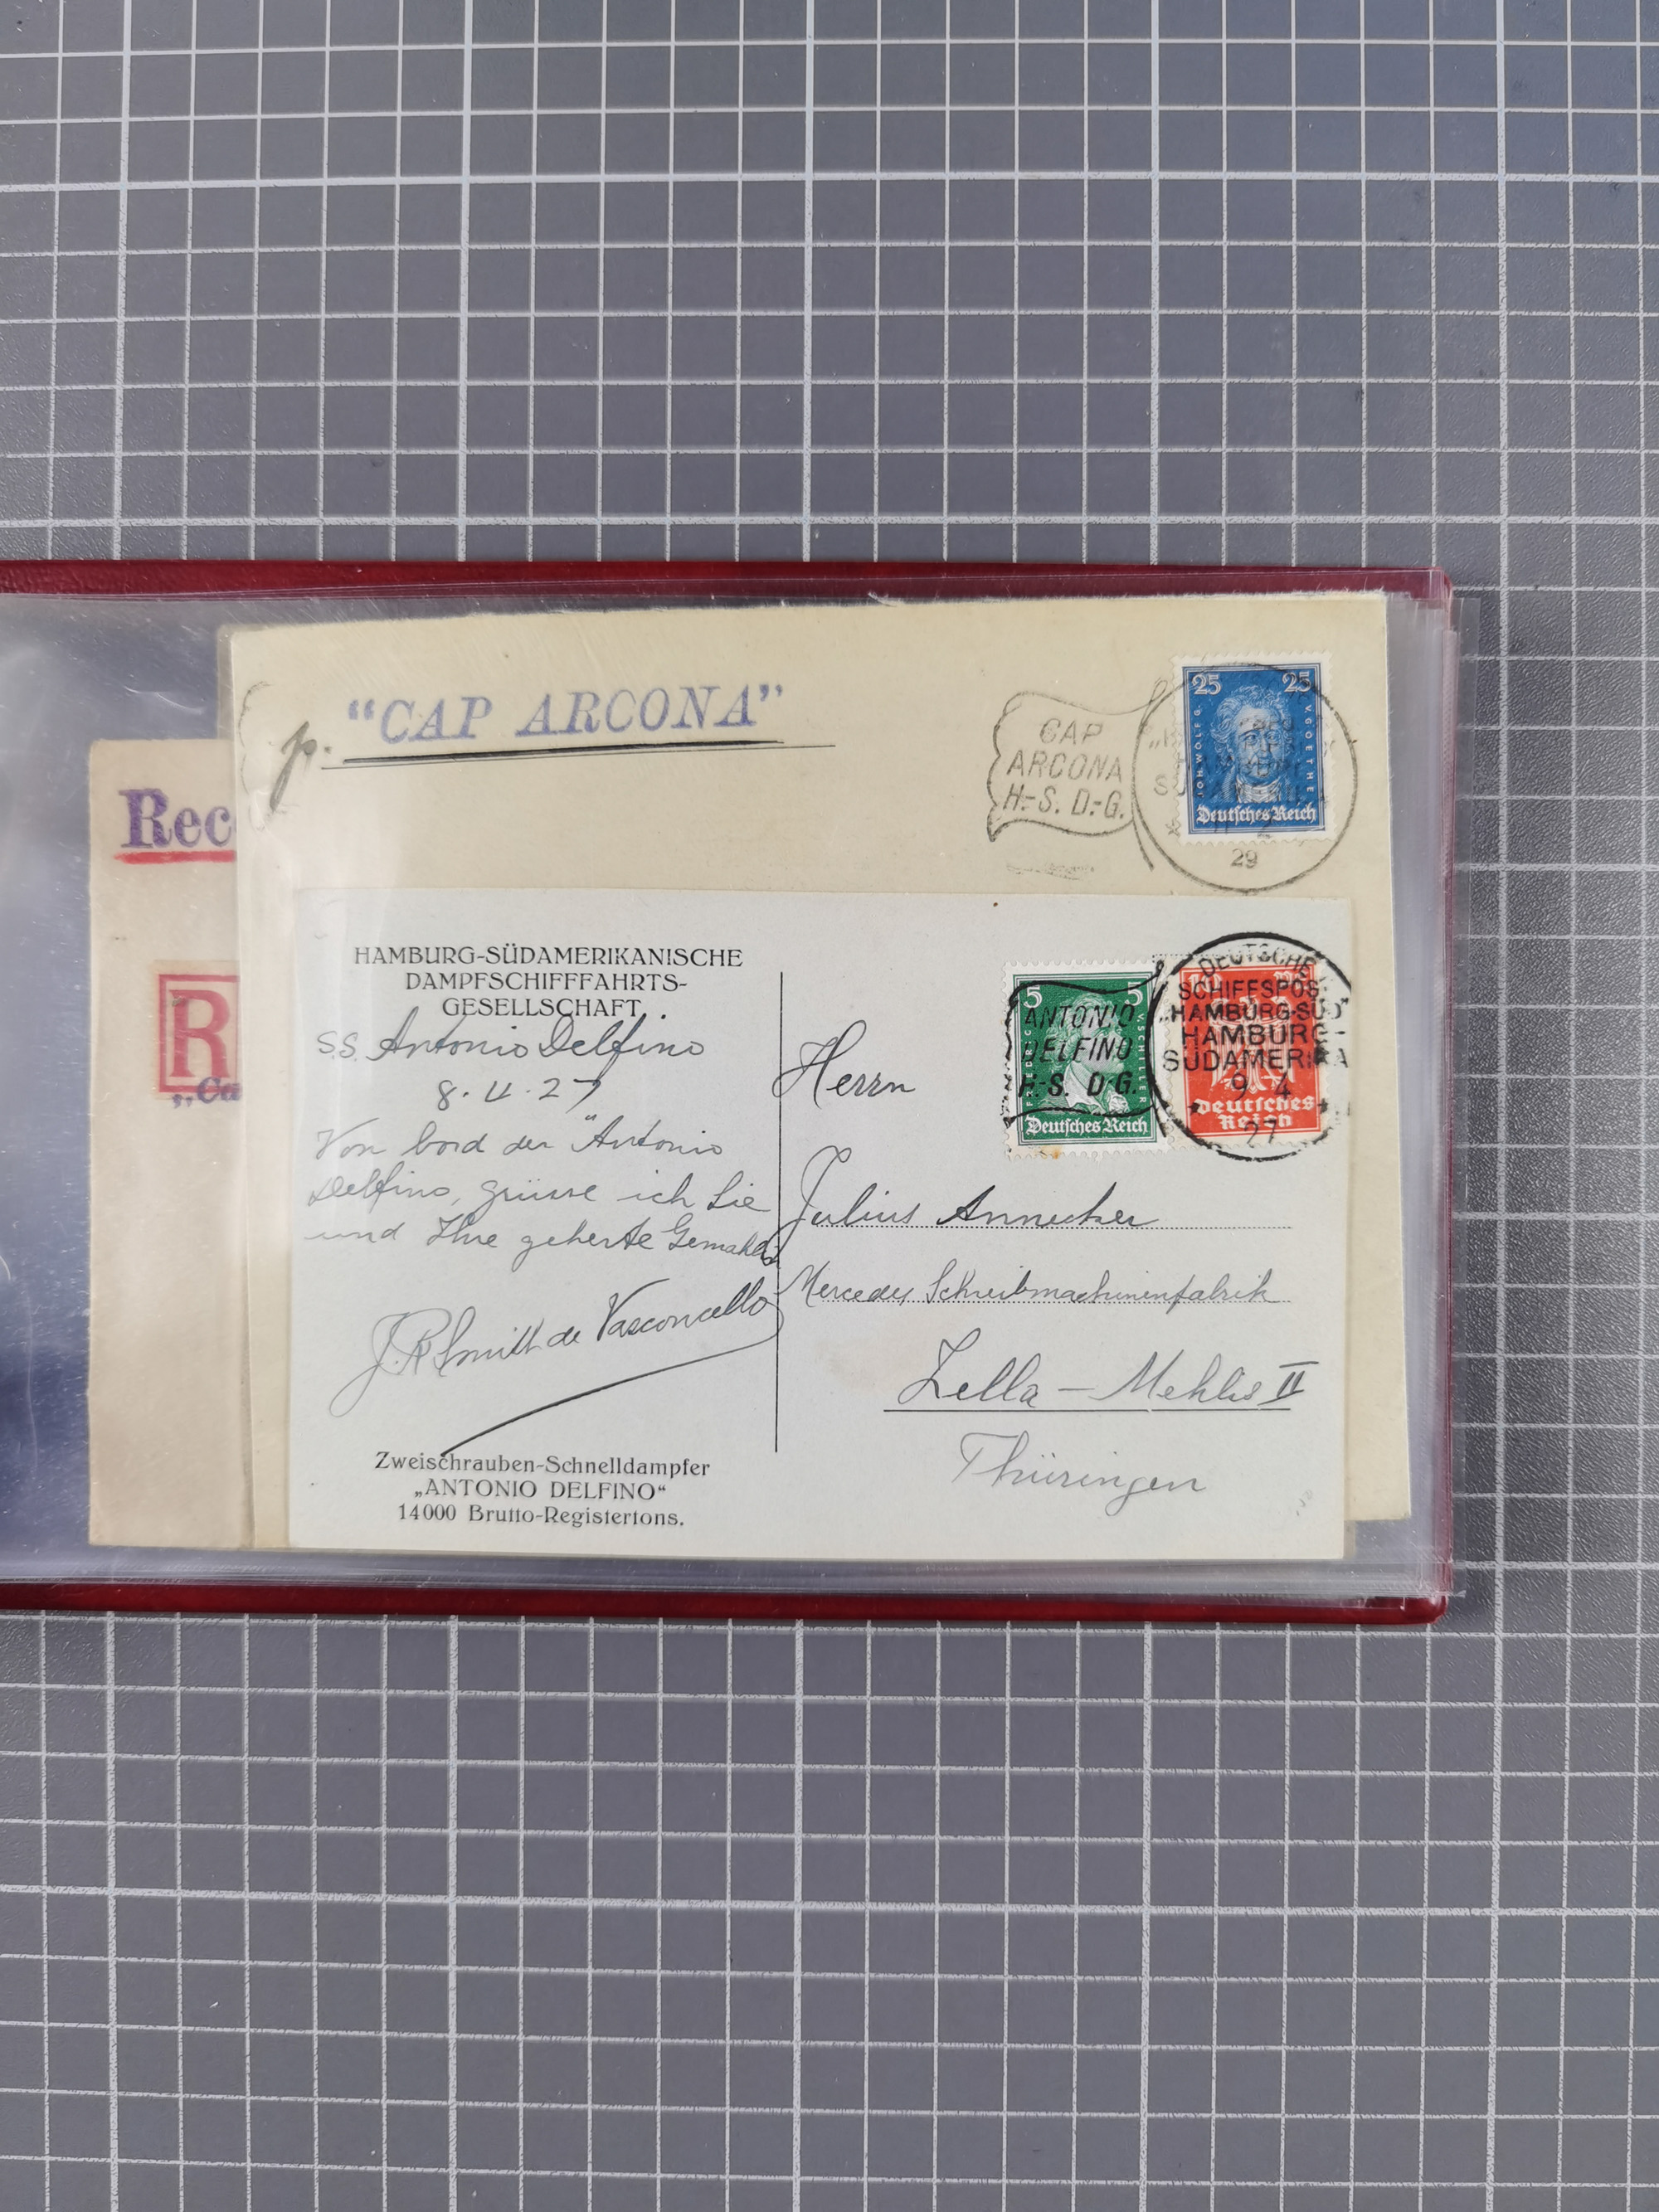 p. "CAP ARCONA"
CAP
ARCONA
H.-S. D.-G.
25 25
JOH. WOLFG. V. GOETHE
Deutsches Reich
29
Rec
R
„Ca
HAMBURG-SÜDAMERIKANISCHE
DAMPFSCHIFFFAHRTS-
GESELLSCHAFT
S.S. Antonio Delfino
8. 4. 27
Von bord der "Antonio
Delfino, grüsse ich Sie
und Ihre geherte Gemahlin
de Vasconcellos
Zweischrauben-Schnelldampfer
„ANTONIO DELFINO“
14000 Brutto-Registertons.
5 5
V. SCHILLER
ANTONIO
DELFINO
H.-S. D.-G.
Deutsches Reich
DEUTSCHE
SCHIFFSPOS
„HAMBURG-SÜD"
HAMBURG-
SÜDAMERIKA
9 4
27
Deutsches
Reich
Herrn
Julius Annecker
Mercedes Schreibmachinenfabrik
Zella - Mehlis II
Thüringen